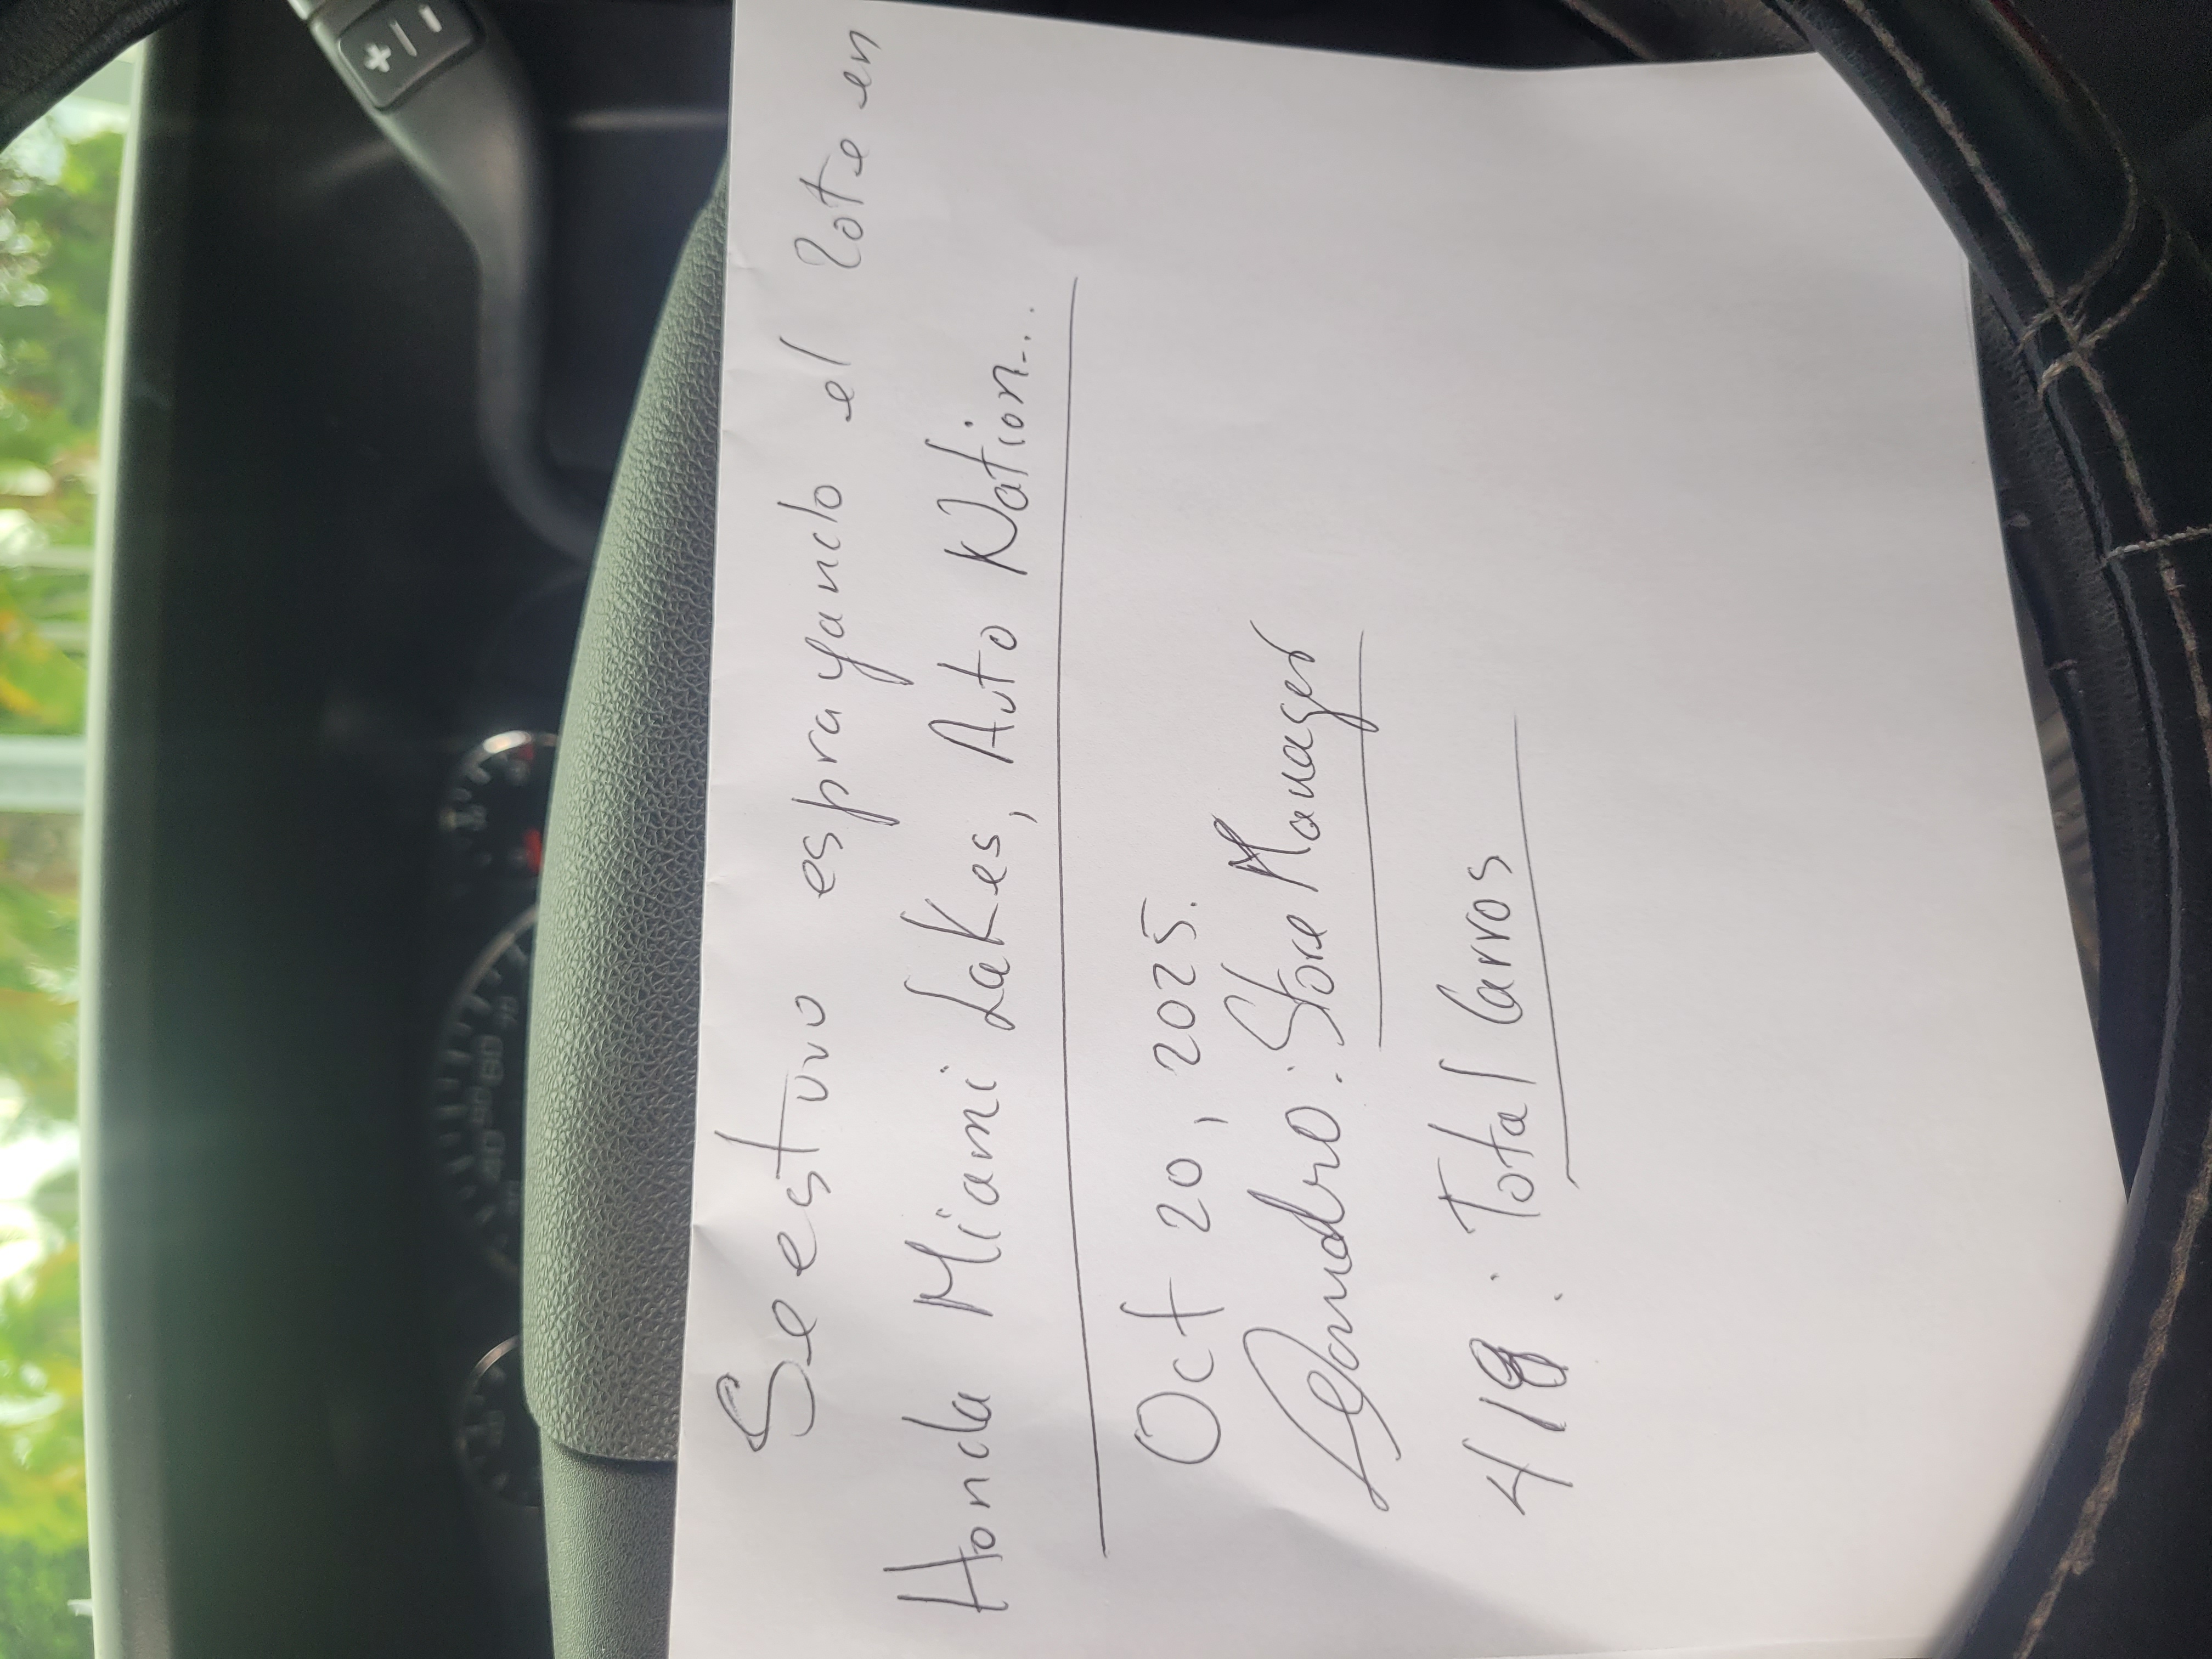 Se estuvo esprayando el Lote en
Honda Miami Lakes, Auto Nation...
Oct 20, 2025.
Leandro: Store Manager
418: Total Carros
+ / -